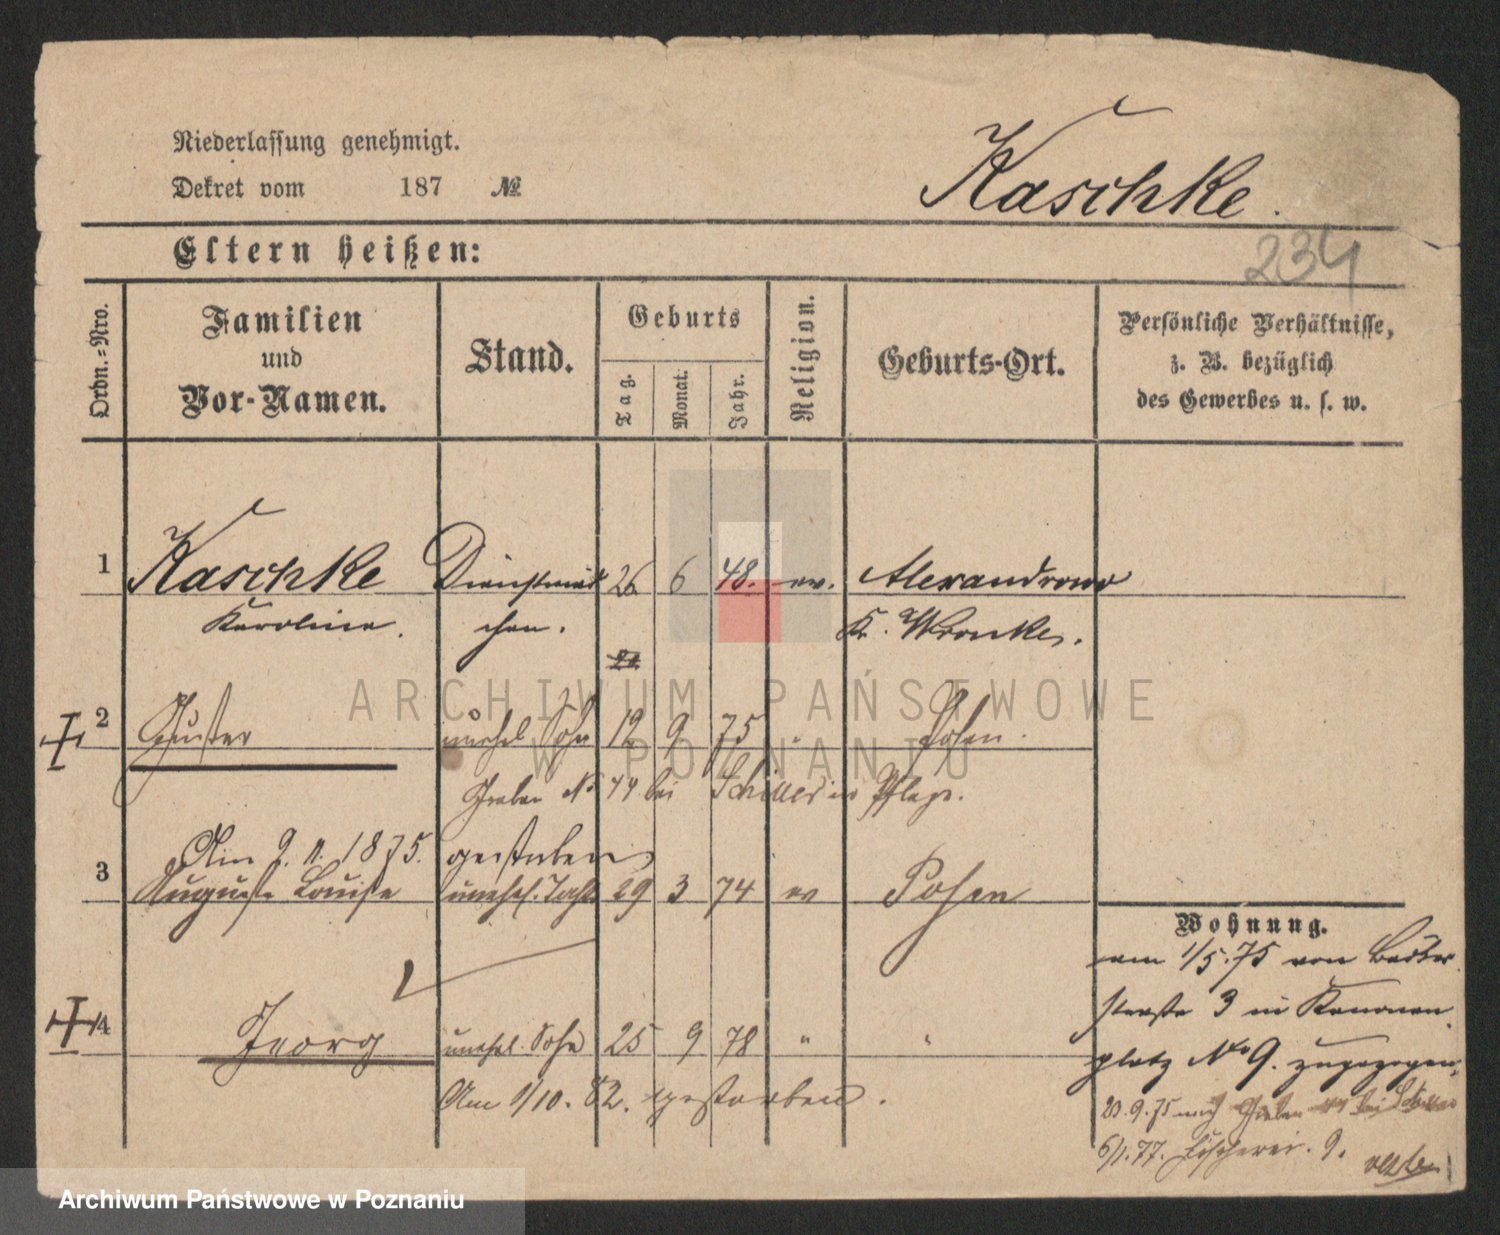 Niederlassung genehmigt.
Dekret vom 187 №
Kaschke.
Eltern heißen:
234
Ordn.-Nro.
Familien
und
Vor-Namen.
Stand.
Geburts
Tag.
Monat.
Jahr.
Religion.
Geburts-Ort.
Persönliche Verhältnisse,
z. B. bezüglich
des Gewerbes u. s. w.
1 Kaschke Dienstmäd 26 6 48. ev. Alexandrowo
Karoline. chen. Kr. Wronke.
21
2 Gustav unehel. Sohn 12 9 75 " Posen.
Graben No 44 bei Schiller in Pflege.
Am 9. 11. 1875. gestorben
3 Auguste Louise unehel. Tocht 29 3 74 ev Posen
4 Georg unehel. Sohn 25 9 78 " "
Am 1/10. 82. gestorben.
Wohnung.
am 1/5. 75 von
straße 3 in Kanonen
platz No 9. zugezogen,
20. 9. 75 nach Graben 44 bei Schiller
6/1. 77. Fischerei. 9.
ARCHIWUM PAŃSTWOWE
W POZNANIU
Archiwum Państwowe w Poznaniu